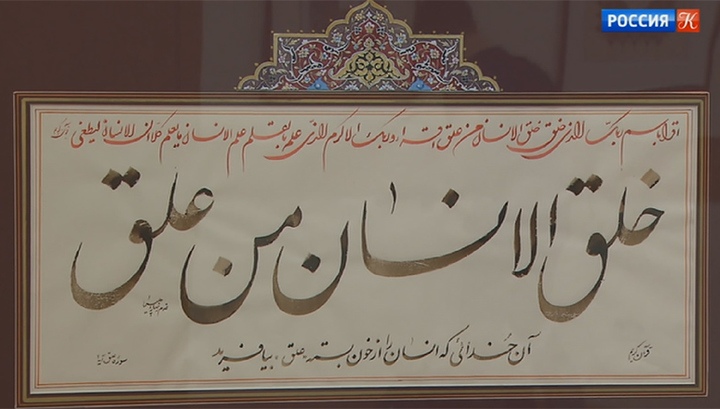 РОССИЯ К
اقرا باسم ربک الذی خلق خلق الانسان من علق اقرا و ربک الاکرم الذی علم بالقلم علم الانسان ما لم یعلم کلا ان الانسان لیطغی
خلق الانسان من علق
آن خدائی که انسان را از خون بسته علق بیافرید
قرآن کریم
سوره علق آیه